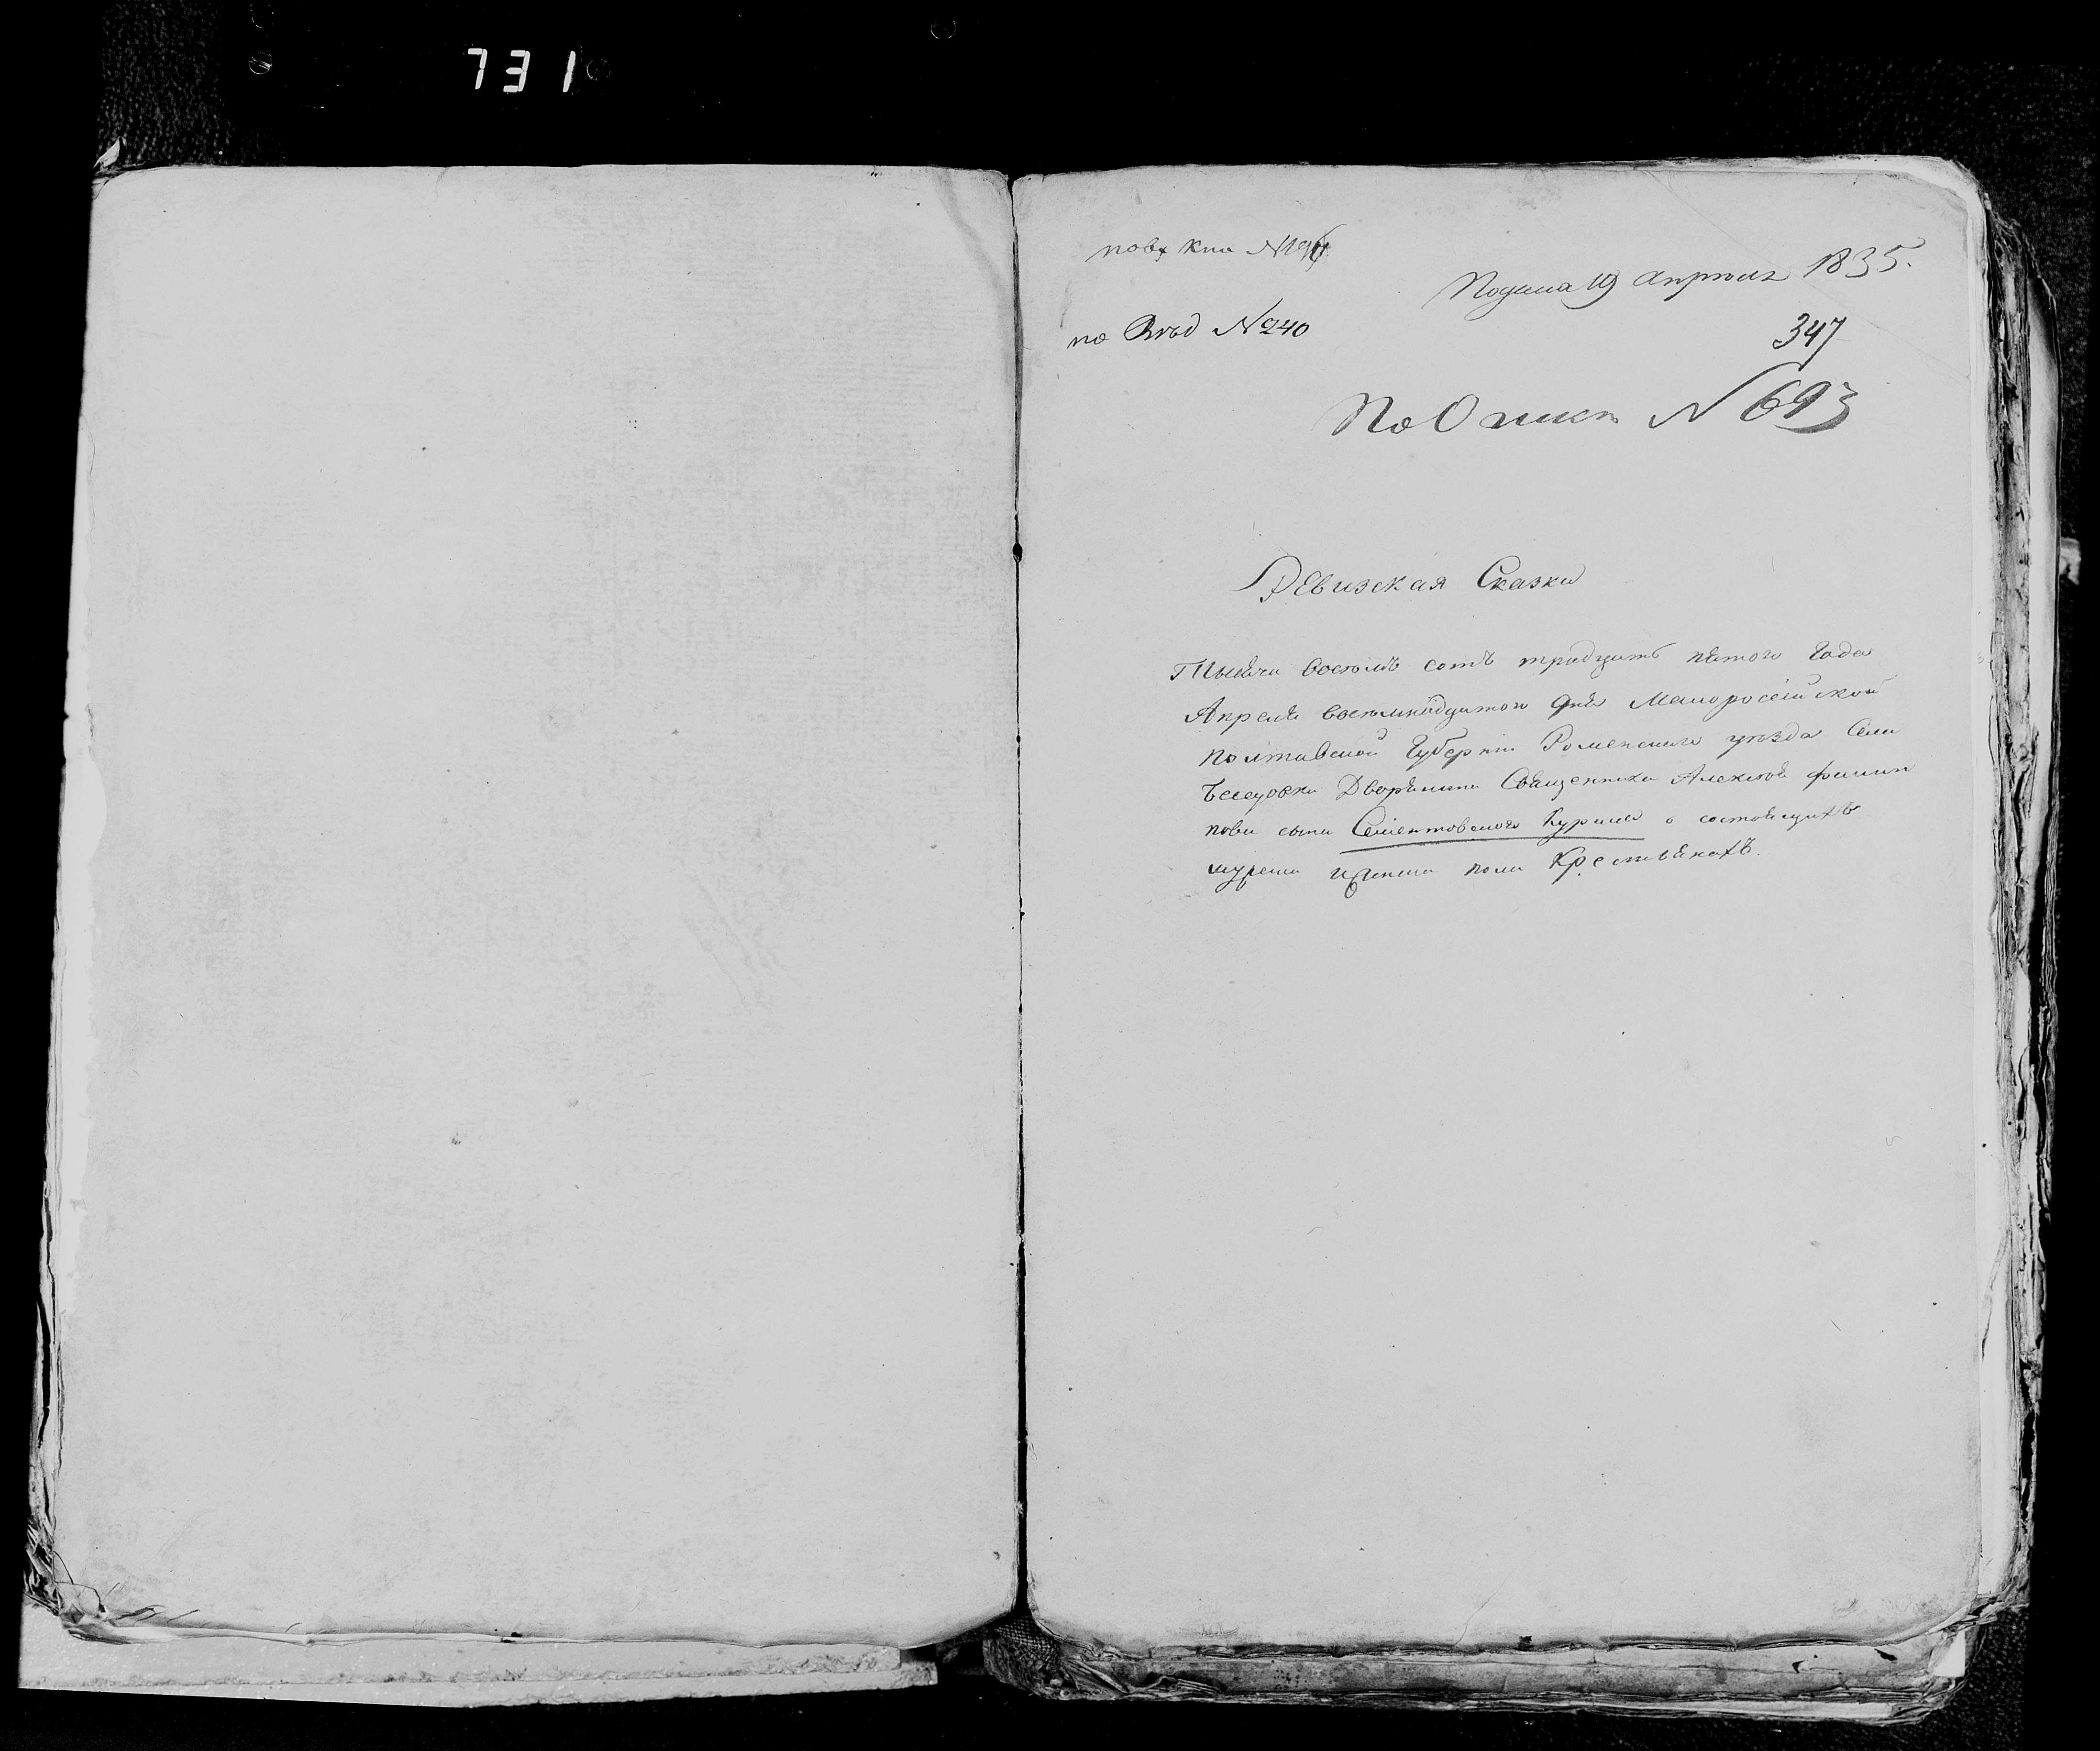 731
по вх кни №
Подана 19 апреля 1835.
по Вѣд №240
347
По Описи N 693
Ревизская Сказка
Тысяча восемь сотъ тридцать пятого Года
Апреля восемнадцатого дня Малоросейской
Полтавской Губернии Роменского уѣзда Села
Беседовки Дворянина Священника Алексея филип
пова сына Сементовского Курила о состоящихъ
мужеска и женска пола Крестьянахъ.